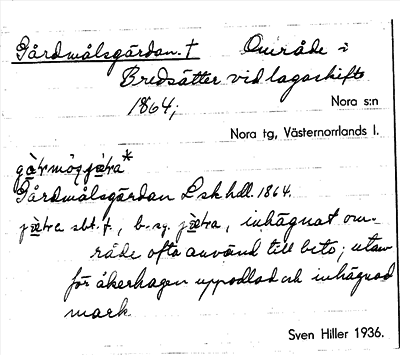 Gårdmålsgärdan. † Område i
Bredsätter vid lagaskifte
1864;
Nora s:n
Nora tg, Västernorrlands l.
Gårdmålsgärdan L sk hdl. 1864.
sbt. f., b. sg. , inhägnat om-
råde ofta använd till bete; utan-
för åkerhagen uppodlad och inhägnad
mark
Sven Hiller 1936.